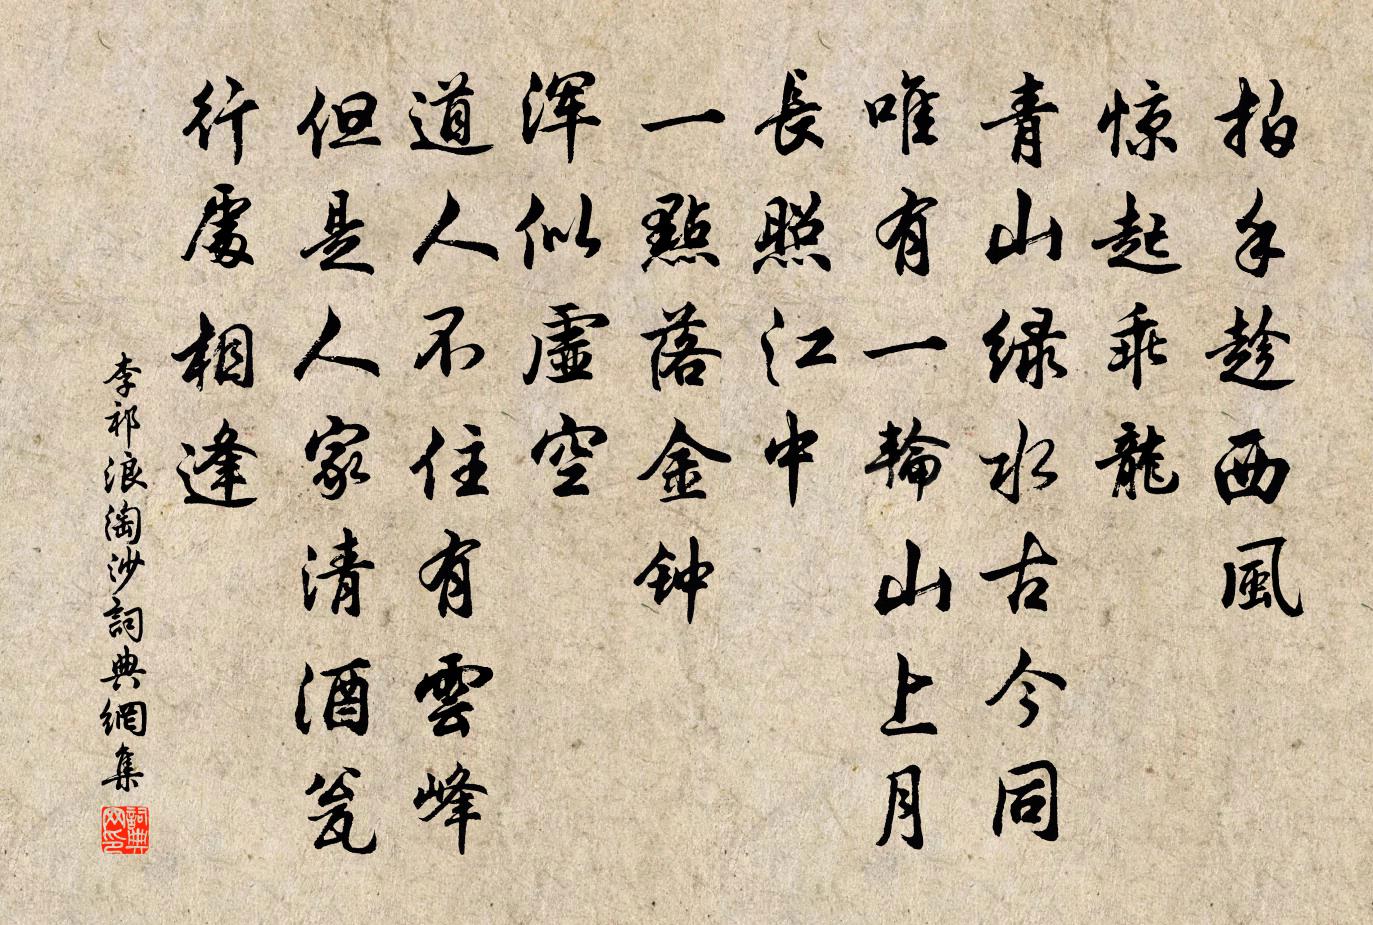 拍手趁西風
惊起乖龍
青山绿水古今同
唯有一輪山上月
長照江中
一點落金钟
浑似虚空
道人不住有雲峰
但是人家清酒瓮
行處相逢
李祁浪淘沙詞典網集
詞典网印